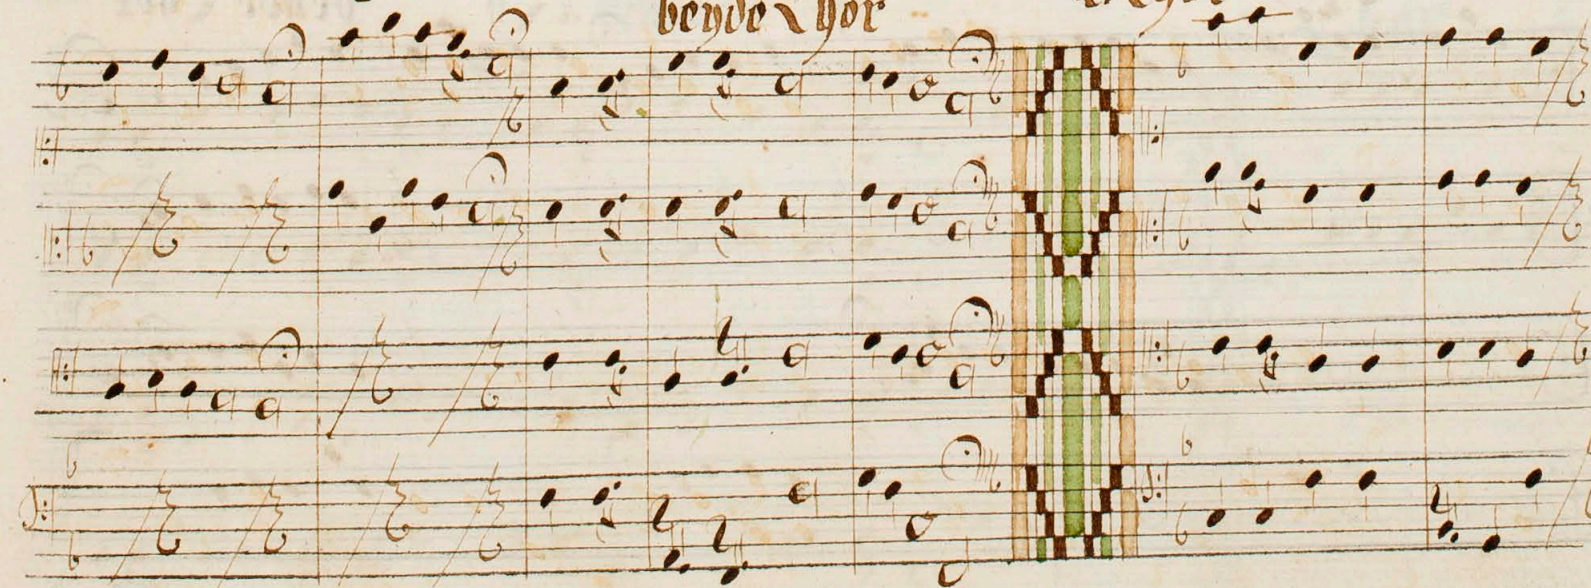 beyde Chor